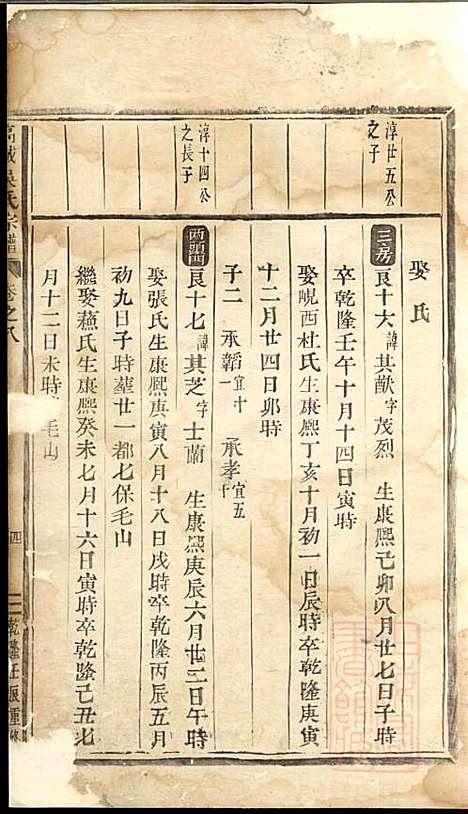 淳廿五公
之子
淳十四公
之長子
娶氏
三房
良十大諱其猷字茂烈 生康熙己卯八月廿七日子時
卒乾隆壬午十月十四日寅時
娶峴西杜氏生康熙丁亥十月初一日辰時卒乾隆庚寅
十二月廿四日卯時
子二 承韜宜十一 承孝宜五十
西頭門
良十七諱其芝字士蘭 生康熙庚辰六月廿二日午時
娶張氏生康熙庚寅八月十八日戌時卒乾隆丙辰五月
初九日子時塟廿一都七保毛山
繼娶蘓氏生康熙癸未七月十六日寅時卒乾隆己丑七
月十二日未時 毛山
吳氏宗譜
卷之八
四
乾隆壬